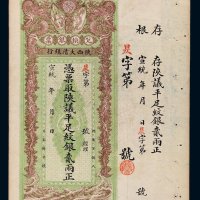 存根
存陝議平足紋銀貳兩正
宣統 年 月 日
字第 號
字第 號
陝西大清銀行
字第 號
憑票取陝議平足紋銀貳兩正
宣統 年 月 日